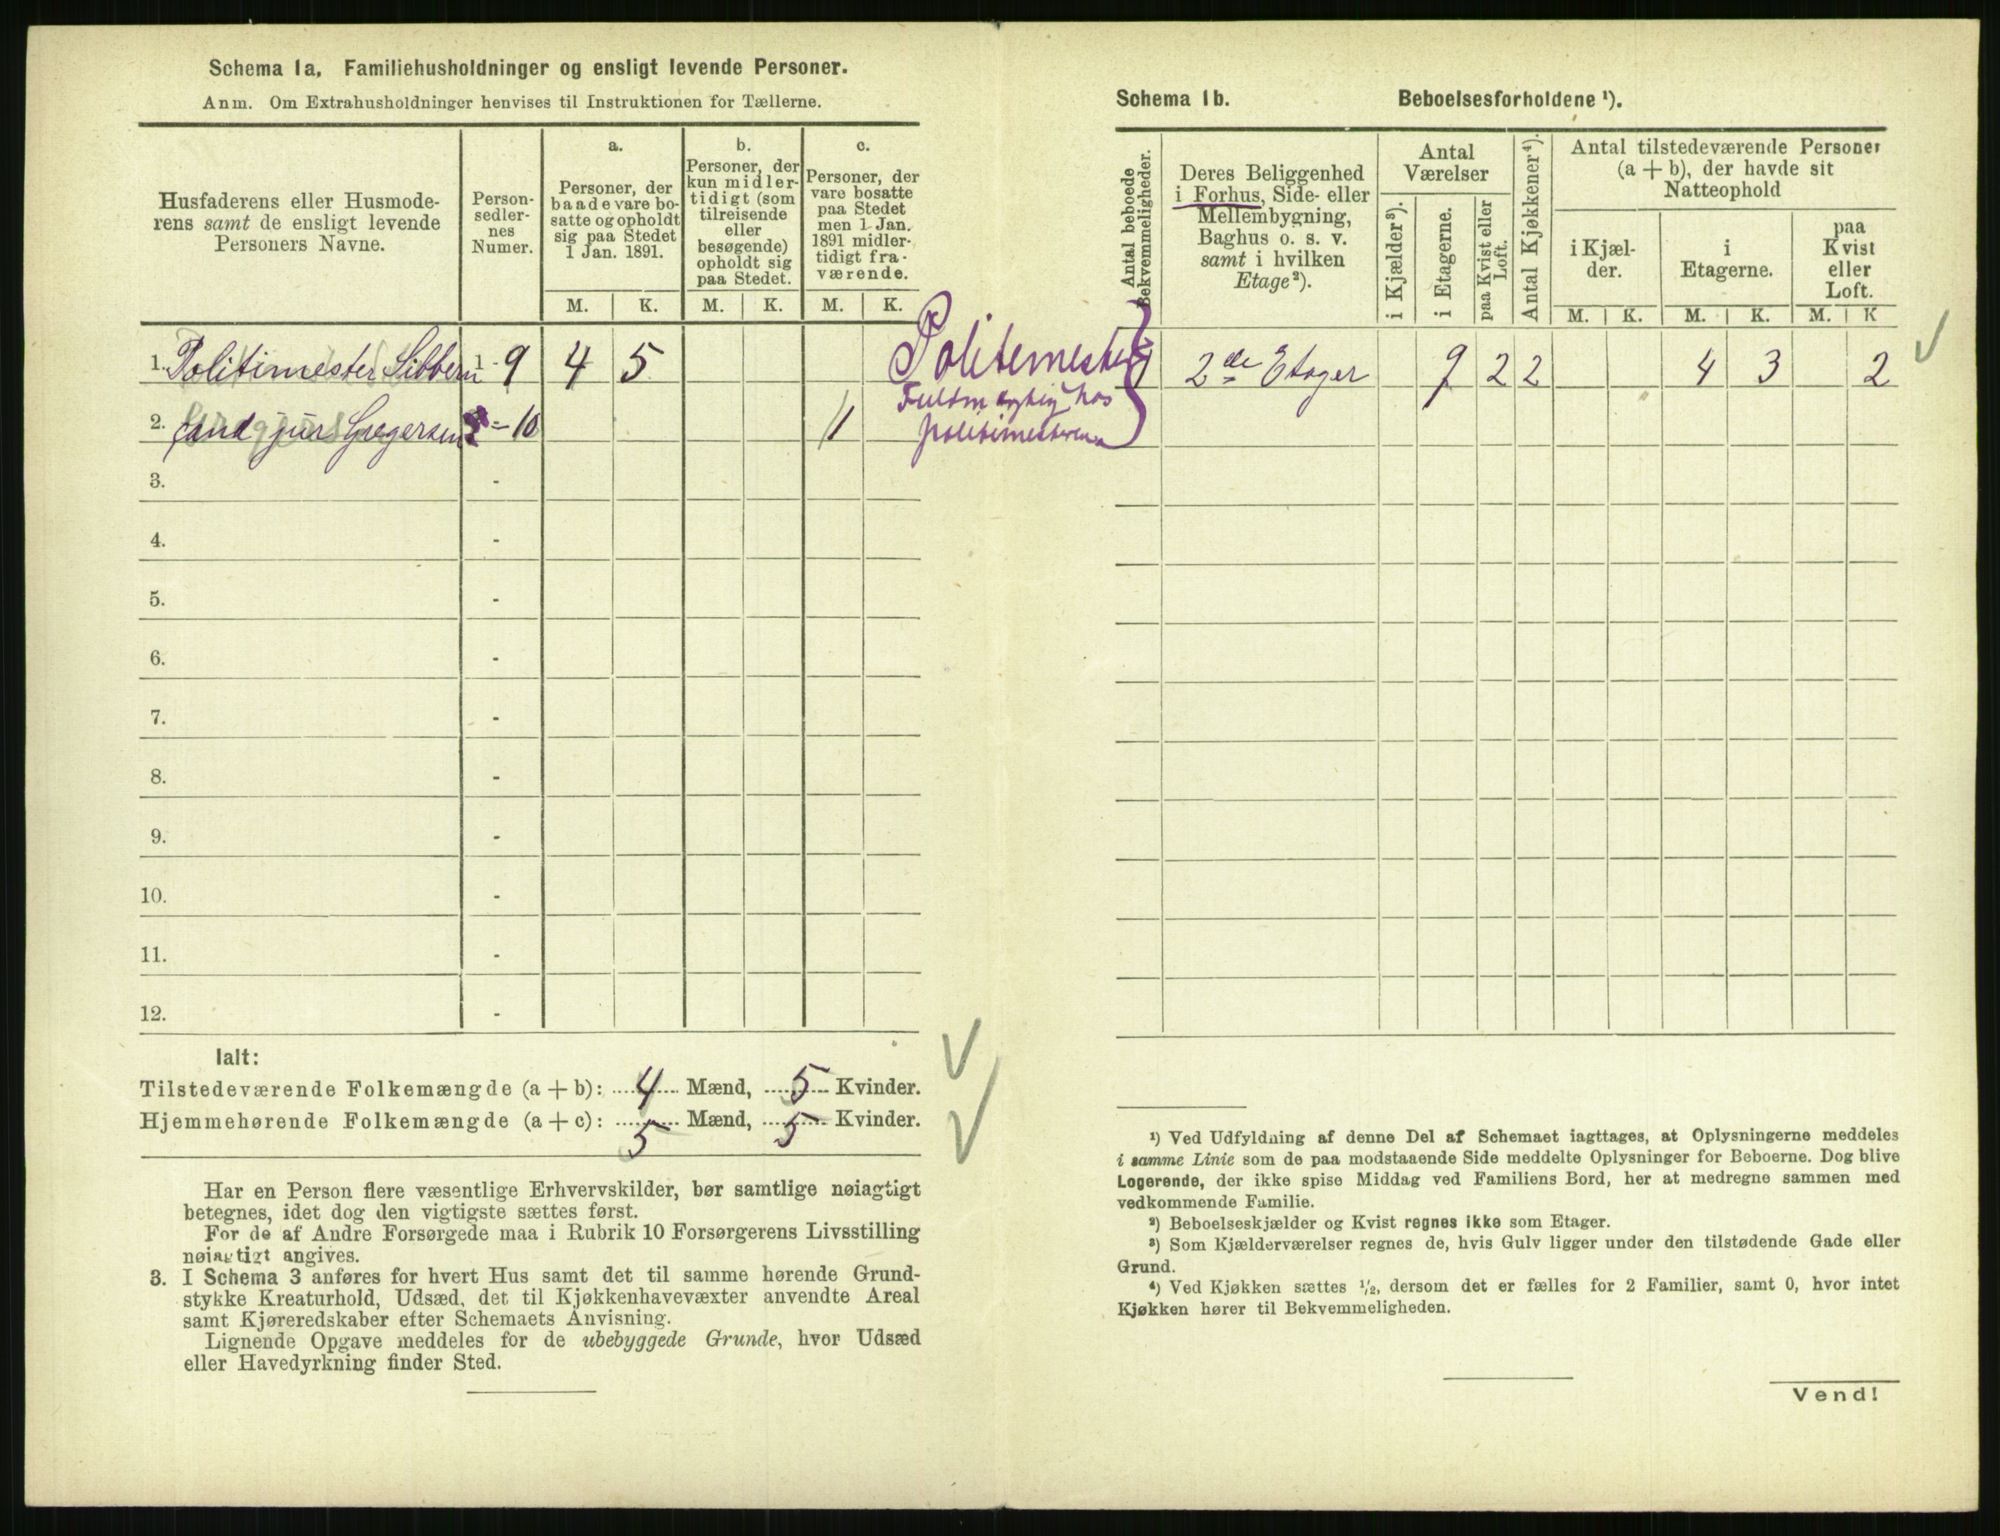 Schema 1a. Familiehusholdninger og ensligt levende Personer.
Anm. Om Extrahusholdninger henvises til Instruktionen for Tællerne.
Husfaderens eller Husmode-
rens samt de ensligt levende
Personers Navne.
Person-
sedler-
nes
Numer.
a.
Personer, der
baade vare bo-
satte og opholdt
sig paa Stedet
1 Jan. 1891.
b.
Personer, der
kun midler-
tidigt (som
tilreisende
eller
besøgende)
opholdt sig
paa Stedet.
c.
Personer, der
vare bosatte
paa Stedet
men 1 Jan.
1891 midler-
tidigt fra-
værende.
M. K. M. K. M. K.
1. Politimester Sibbern 1 - 9 4 5
2. Cand jur Gregersen - 10 1
3. -
4. -
5. -
6. -
7. -
8. -
9. -
10. -
11. -
12. -
Politimester
Fuldmægtig hos
politimesteren
Ialt:
Tilstedeværende Folkemængde (a + b): 4 Mænd, 5 Kvinder.
Hjemmehørende Folkemængde (a + c): 5 Mænd, 5 Kvinder.
Har en Person flere væsentlige Erhvervskilder, bør samtlige nøiagtigt
betegnes, idet dog den vigtigste sættes først.
For de af Andre Forsørgede maa i Rubrik 10 Forsørgerens Livsstilling
nøiagtigt angives.
3. I Schema 3 anføres for hvert Hus samt det til samme hørende Grund-
stykke Kreaturhold, Udsæd, det til Kjøkkenhavevæxter anvendte Areal
samt Kjøreredskaber efter Schemaets Anvisning.
Lignende Opgave meddeles for de ubebyggede Grunde, hvor Udsæd
eller Havedyrkning finder Sted.
Schema 1b. Beboelsesforholdene ¹).
Antal beboede
Bekvemmeligheder.
Deres Beliggenhed
i Forhus, Side- eller
Mellembygning,
Baghus o. s. v.
samt i hvilken
Etage²).
Antal
Værelser
i Kjælder³).
i Etagerne.
paa Kvist eller
Loft.
Antal Kjøkkener⁴).
Antal tilstedeværende Personer
(a + b), der havde sit
Natteophold
i Kjæl-
der.
i
Etagerne.
paa
Kvist
eller
Loft.
M. K. M. K. M. K
1 2de Etager 9 2 2 4 3 2
¹) Ved Udfyldning af denne Del af Schemaet iagttages, at Oplysningerne meddeles
i samme Linie som de paa modstaaende Side meddelte Oplysninger for Beboerne. Dog blive
Logerende, der ikke spise Middag ved Familiens Bord, her at medregne sammen med
vedkommende Familie.
²) Beboelseskjælder og Kvist regnes ikke som Etager.
³) Som Kjælderværelser regnes de, hvis Gulv ligger under den tilstødende Gade eller
Grund.
⁴) Ved Kjøkken sættes ½, dersom det er fælles for 2 Familier, samt 0, hvor intet
Kjøkken hører til Bekvemmeligheden.
Vend!